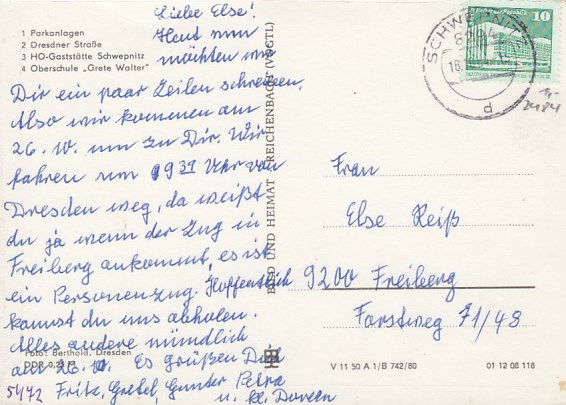 1 Parkanlagen
2 Dresdner Straße
3 HO-Gaststätte Schwepnitz
4 Oberschule „Grete Walter"
Liebe Else!
Heut nun
möchten wir
Dir ein paar Zeilen schreiben.
Also wir kommen am
26. 10. um zu Dir. Wir
fahren um 9 39 Uhr von
Dresden weg, da weißt
du ja wenn der Zug in
Freiberg ankommt, es ist
ein Personenzug. Hoffentlich
kannst du uns abholen.
Alles andere mündlich
am 26. 10. Es grüßen Dich
Fritz, Gretel, Gunter Petra
u. kl. Doreen
Foto: Berthold, Dresden
DDR 0,20 M
5472
BILD UND HEIMAT REICHENBACH (VOGTL)
10
SCHWEPNITZ
d
Frau
Else Reiß
9200 Freiberg
Forstweg 71/48
V 11 50 A 1/B 742/80
01 12 08 118